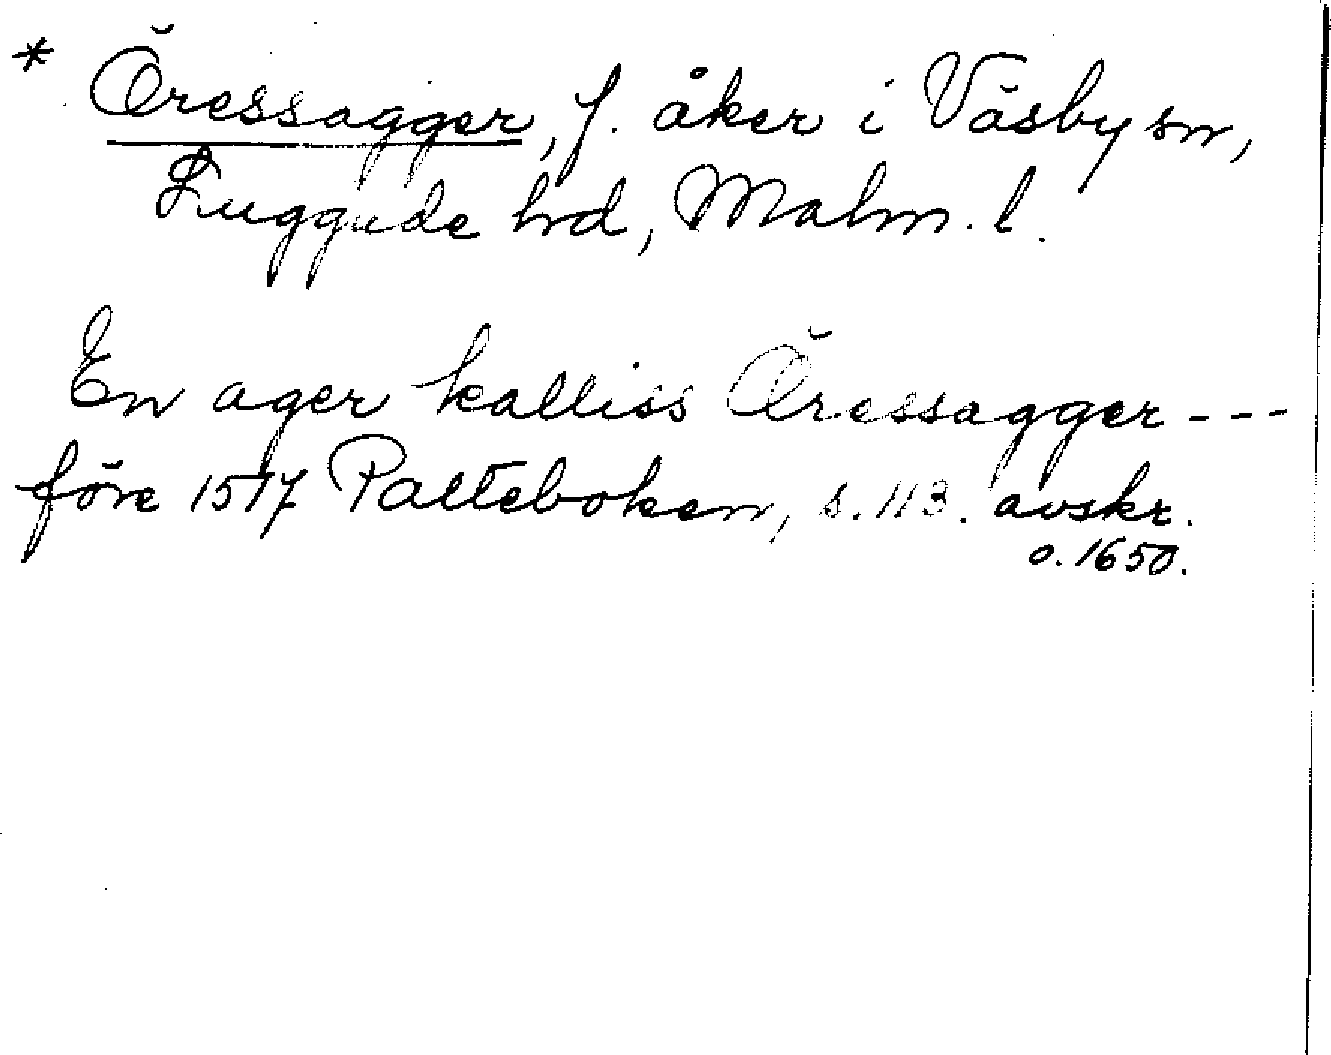 * Öressagger, f. åker i Väsby sn,
Luggude hd, Malm. l.
En ager kalliss Öressagger ---
före 1517 Palteboken, s. 113. avskr.
o. 1650.